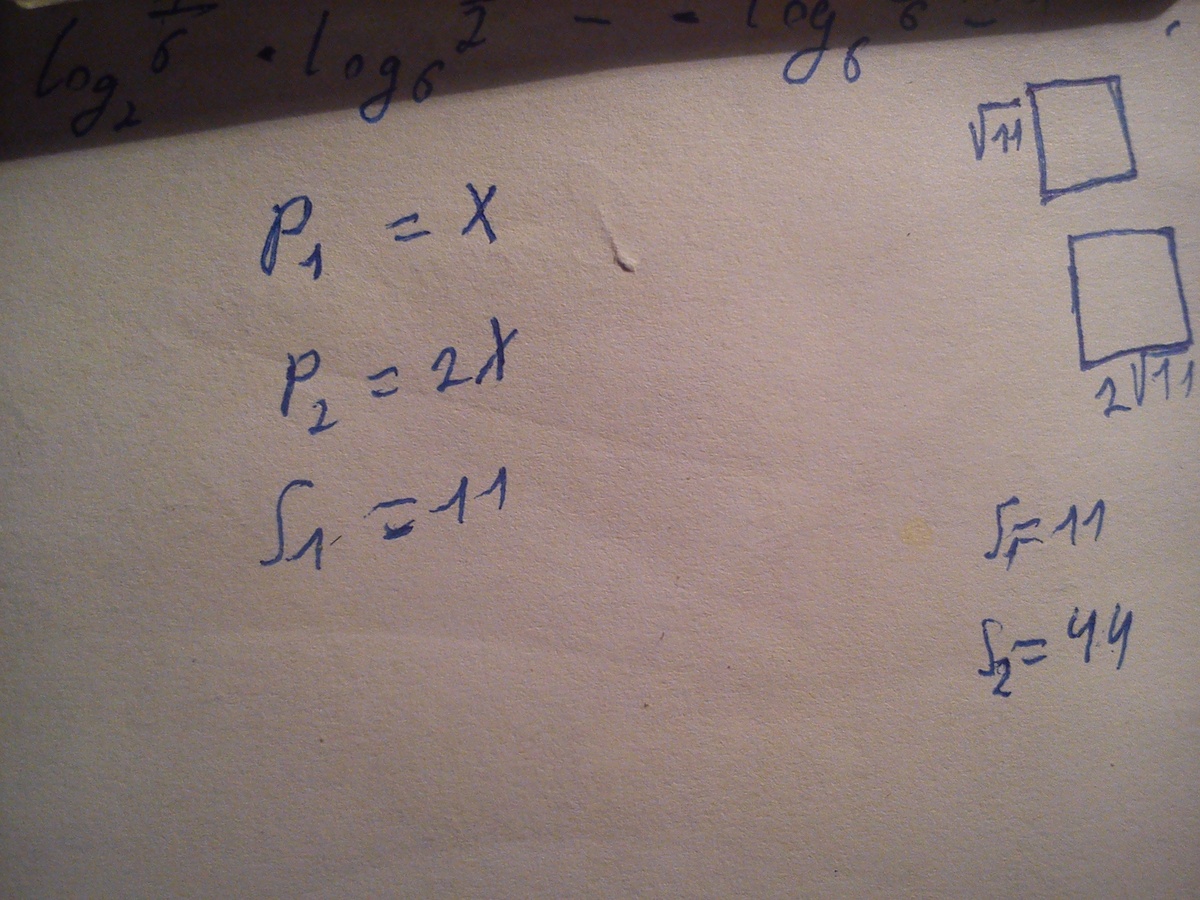 log₂ 1/6 · log₆ 2 - - log₆ 6 =
P₁ = X
P₂ = 2X
S₁ = 11
√11
2√11
S₁ = 11
S₂ = 44